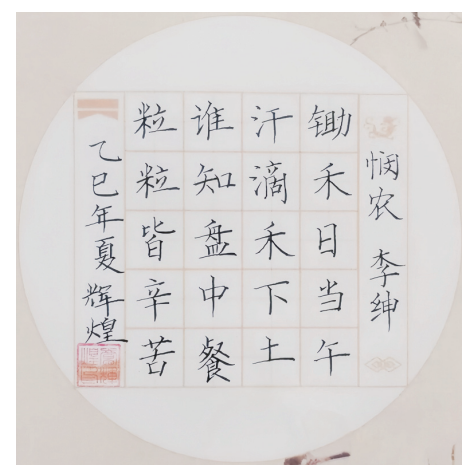 悯农 李绅
锄禾日当午
汗滴禾下土
谁知盘中餐
粒粒皆辛苦
乙巳年夏 辉煌